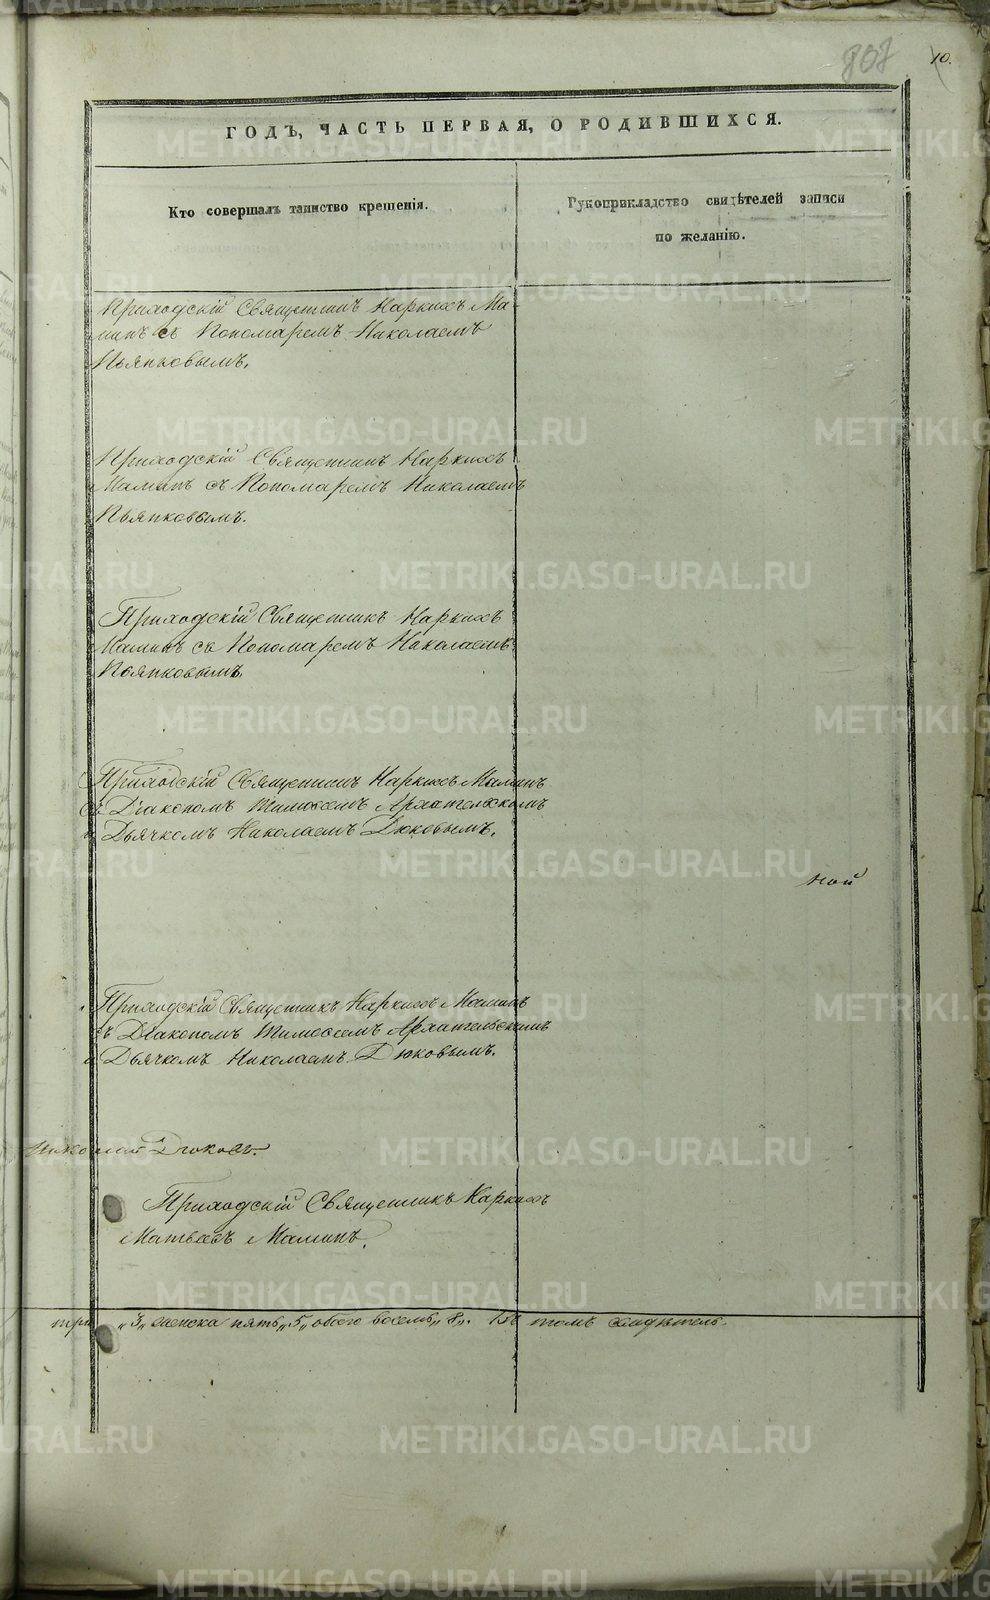 807 10.
ГОДЪ, ЧАСТЬ ПЕРВАЯ, О РОДИВШИХСЯ.
Кто совершалъ таинство крещенія.
Рукоприкладство свидѣтелей записи
по желанію.
Приходскій Священникъ Наркисъ Ма-
минъ съ Пономаремъ Николаемъ
Пьянковымъ.
Приходскій Священникъ Наркисъ
Маминъ съ Пономаремъ Николаемъ
Пьянковымъ.
Приходскій Священникъ Наркисъ
Маминъ съ Пономаремъ Николаемъ
Пьянковымъ.
Приходскій Священникъ Наркисъ Маминъ
съ Діакономъ Тимофеемъ Архангельскимъ
и Дьячкомъ Николаемъ Дюковымъ.
ной
Приходскій Священникъ Наркисъ Маминъ
съ Діакономъ Тимофеемъ Архангельскимъ
и Дьячкомъ Николаемъ Дюковымъ.
Николай Дюковъ.
Приходскій Священникъ Наркисъ
Матвѣевъ Маминъ.
три „3„ женска пять „5„ обоего восемь „8„. Въ томъ свидѣтель-
METRIKI.GASO-URAL.RU